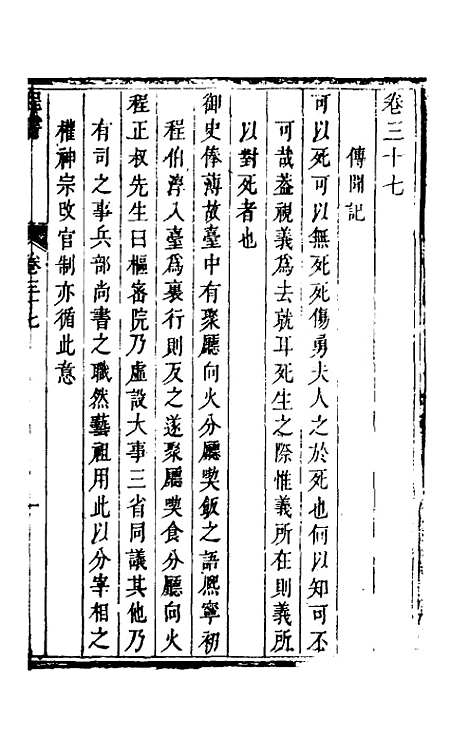 卷三十七
傳聞記
可以死可以無死死傷勇夫人之於死也何以知可不
可哉蓋視義為去就耳死生之際惟義所在則義所
以對死者也
御史俸薄故臺中有聚廳向火分廳喫飯之語熙寧初
程伯淳入臺為裏行則反之遂聚廳喫食分廳向火
程正叔先生曰樞密院乃虛設大事三省同議其他乃
有司之事兵部尚書之職然藝祖用此以分宰相之
權神宗改官制亦循此意
卷三十七
一